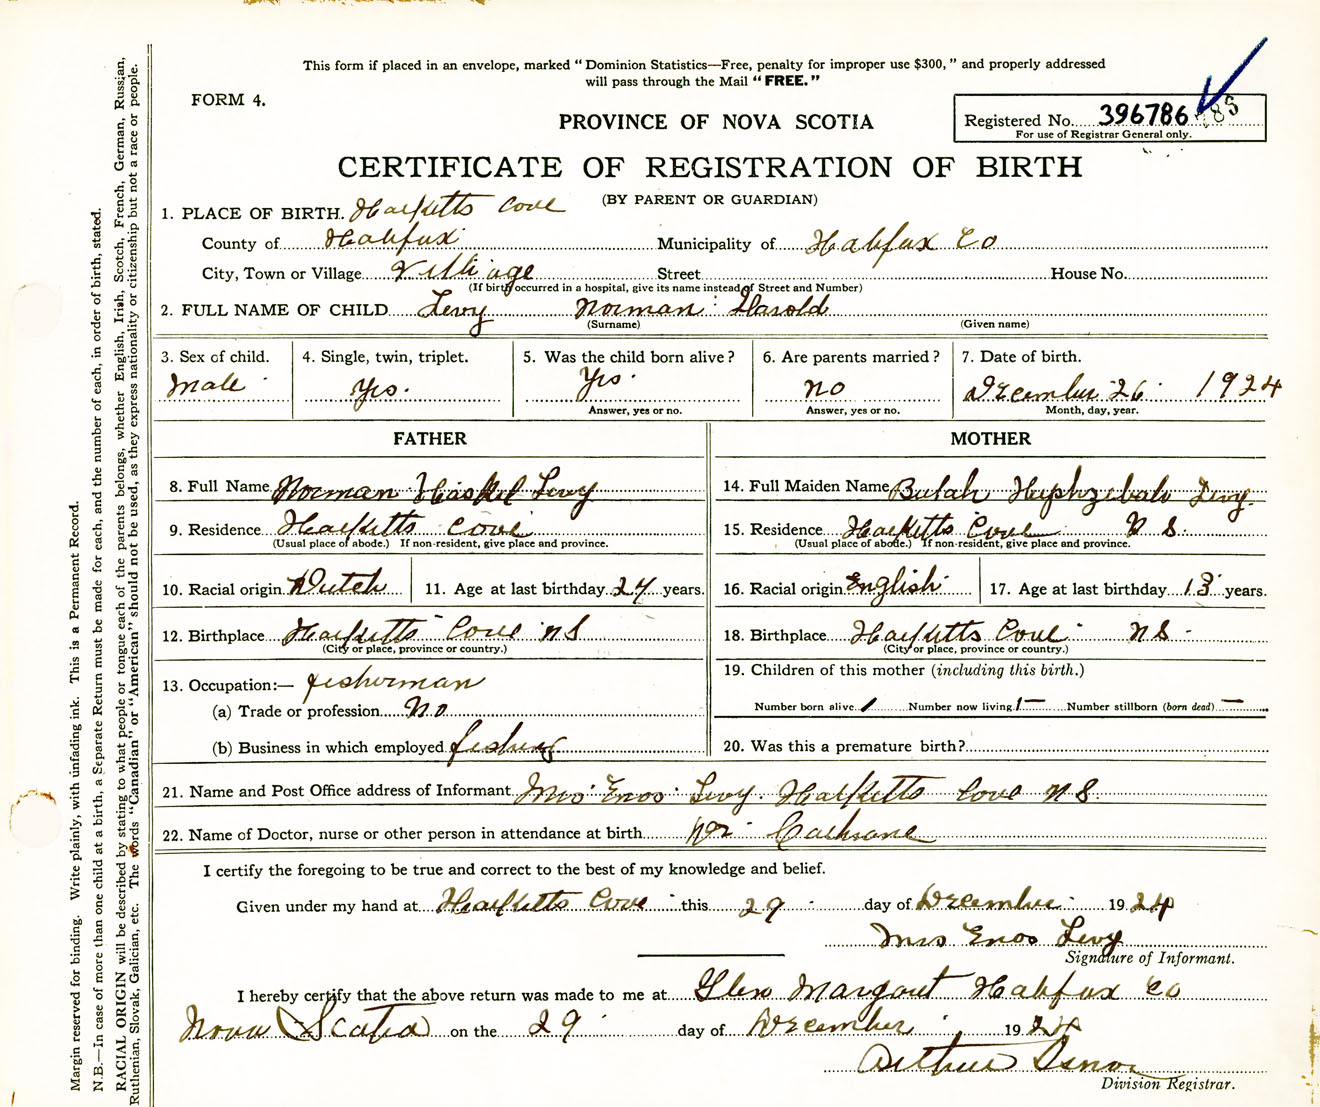 This form if placed in an envelope, marked "Dominion Statistics—Free, penalty for improper use $300," and properly addressed
will pass through the Mail "FREE."
FORM 4.
Registered No. 396786
For use of Registrar General only.
PROVINCE OF NOVA SCOTIA
CERTIFICATE OF REGISTRATION OF BIRTH
(BY PARENT OR GUARDIAN)
1. PLACE OF BIRTH. Hacketts Cove
County of Halifax Municipality of Halifax Co
City, Town or Village Villiage Street House No.
(If birth occurred in a hospital, give its name instead of Street and Number)
2. FULL NAME OF CHILD Levy Norman Harold
(Surname) (Given name)
3. Sex of child. 4. Single, twin, triplet. 5. Was the child born alive? 6. Are parents married? 7. Date of birth.
Male Yes. Yes. no December 26 1924
Answer, yes or no. Answer, yes or no. Month, day, year.
FATHER MOTHER
8. Full Name Norman Haskel Levy 14. Full Maiden Name Bulah Hephzebah Levy.
9. Residence Hacketts Cove 15. Residence Hacketts Cove N S.
(Usual place of abode.) If non-resident, give place and province. (Usual place of abode.) If non-resident, give place and province.
10. Racial origin Dutch 11. Age at last birthday 27 years. 16. Racial origin English 17. Age at last birthday 18 years.
12. Birthplace Hacketts Cove NS 18. Birthplace Hacketts Cove NS -
(City or place, province or country.) (City or place, province or country.)
13. Occupation:— fisherman 19. Children of this mother (including this birth.)
(a) Trade or profession No Number born alive 1 Number now living 1— Number stillborn (born dead) —
(b) Business in which employed fishing 20. Was this a premature birth?
21. Name and Post Office address of Informant Mrs Enos Levy. Hacketts Cove NS.
22. Name of Doctor, nurse or other person in attendance at birth Dr Cochrane
I certify the foregoing to be true and correct to the best of my knowledge and belief.
Given under my hand at Hacketts Cove this 29 day of December 1924
Mrs Enos Levy
Signature of Informant.
I hereby certify that the above return was made to me at Glen Margaret Halifax Co
Nova Scotia on the 29 day of December 1924
Arthur Isnor
Division Registrar.
Margin reserved for binding. Write plainly, with unfading ink. This is a Permanent Record.
N.B.—In case of more than one child at a birth, a Separate Return must be made for each, and the number of each, in order of birth, stated.
RACIAL ORIGIN will be described by stating to what people or tongue each of the parents belongs, whether English, Irish, Scotch, French, German, Russian,
Ruthenian, Slovak, Galician, etc. The words "Canadian" or "American" should not be used, as they express nationality or citizenship but not a race or people.